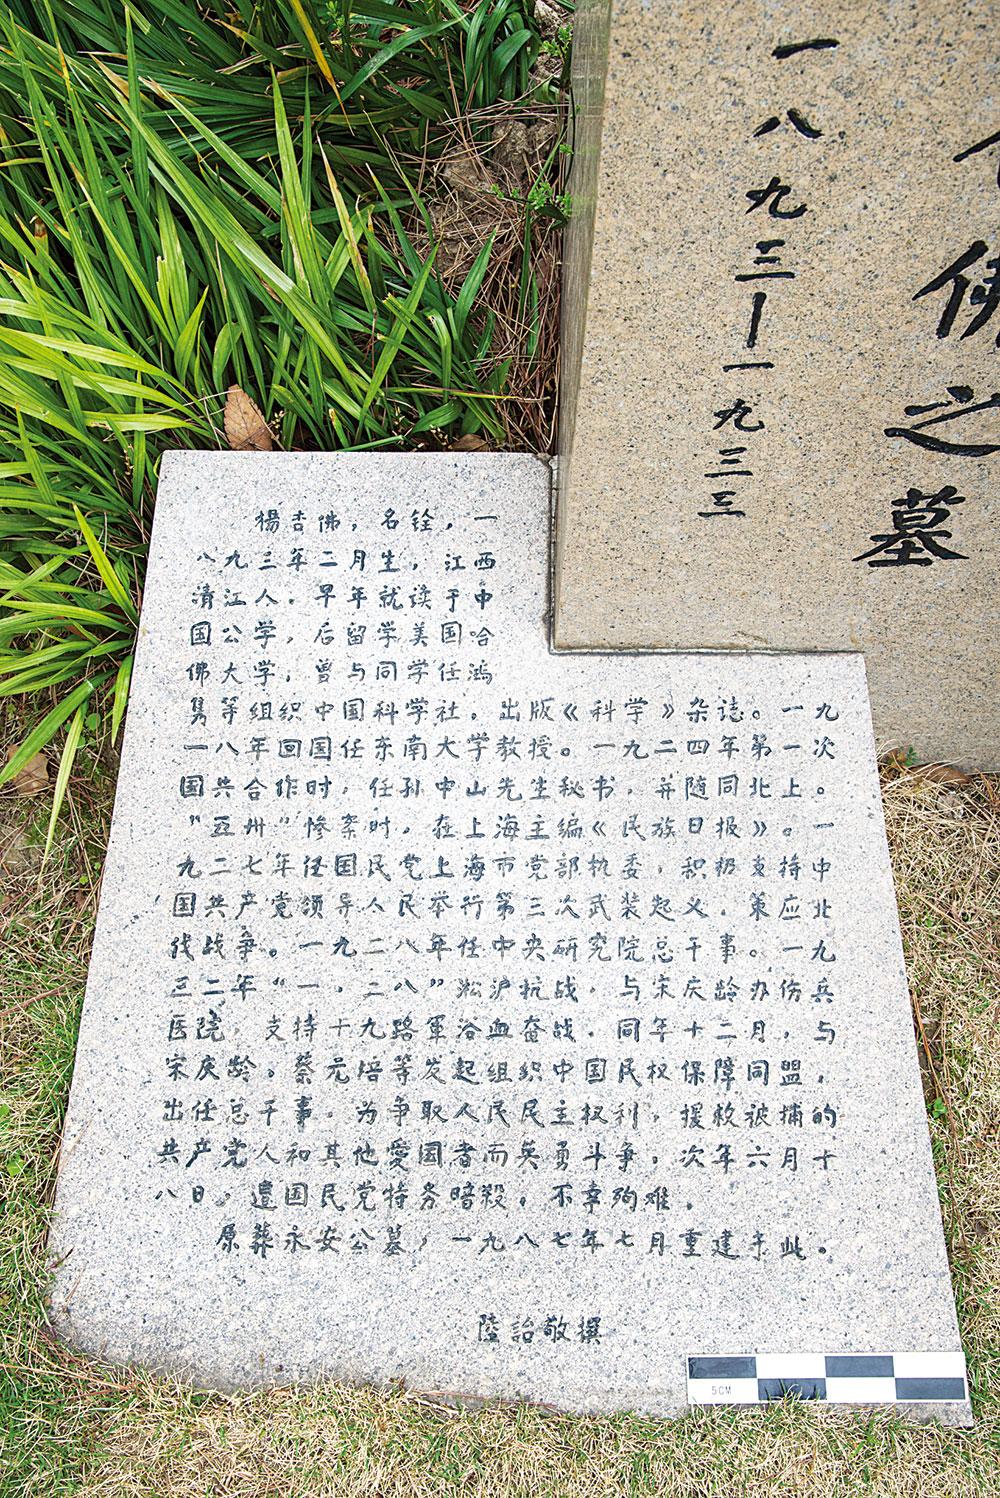 佛之墓
一八九三—一九三三
楊杏佛，名铨，一
八九三年二月生，江西
清江人。早年就读于中
国公学，后留学美国哈
佛大学，曾与同学任鸿
隽等组织中国科学社，出版《科学》杂誌。一九
一八年回国任东南大学教授。一九二四年第一次
国共合作时，任孙中山先生秘书，并随同北上。
“五卅”惨案时，在上海主编《民族日报》。一
九二七年任国民党上海市党部执委，积极支持中
国共产党领导人民举行第三次武装起义，策应北
伐战争。一九二八年任中央研究院总干事。一九
三二年“一．二八”淞沪抗战，与宋庆龄办伤兵
医院，支持十九路軍浴血奋战，同年十二月，与
宋庆龄。蔡元培等发起组织中国民权保障同盟，
出任总干事，为争取人民民主权利，援救被捕的
共产党人和其他愛国者而英勇斗争，次年六月十
八日，遭国民党特务暗殺，不幸殉难。
原葬永安公墓，一九八七年七月重建于此。
陸詒敬撰
5CM